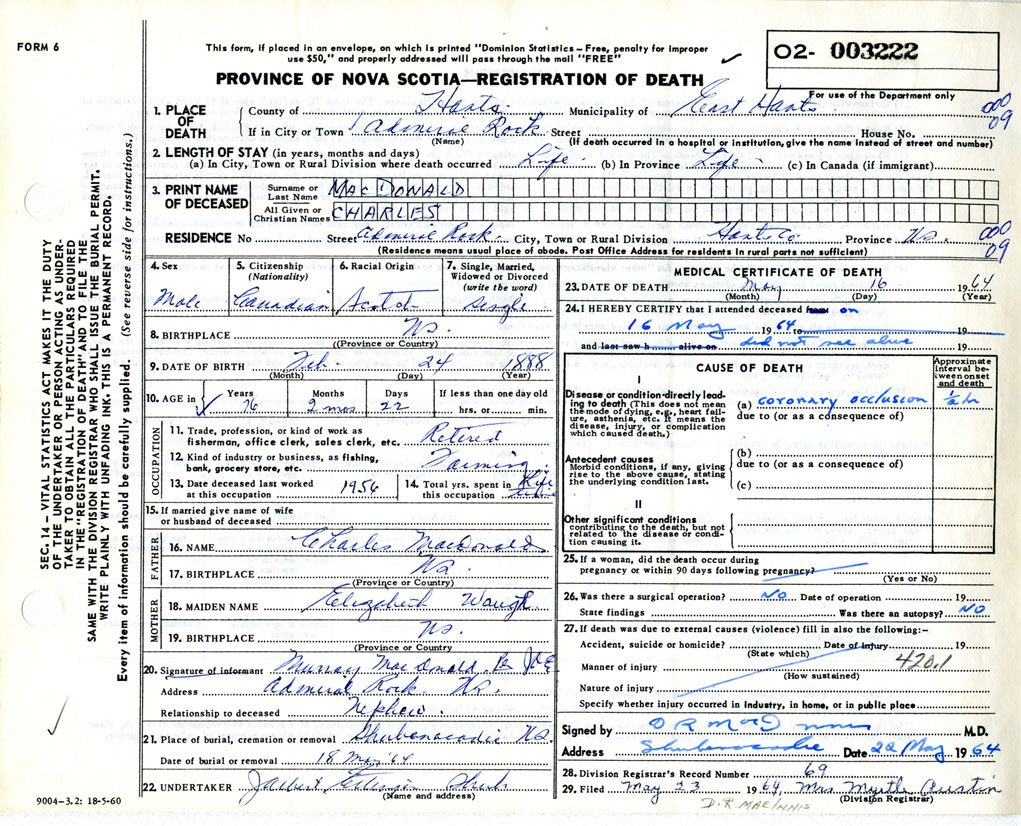 FORM 6
This form, if placed in an envelope, on which is printed "Dominion Statistics – Free, penalty for improper
use $50," and properly addressed will pass through the mail "FREE"
PROVINCE OF NOVA SCOTIA—REGISTRATION OF DEATH
02- 003222
For use of the Department only
1. PLACE OF DEATH
County of Hants. Municipality of East Hants. 000
If in City or Town Admiril Rock Street House No. 09
(Name) (If death occurred in a hospital or institution, give the name instead of street and number)
2. LENGTH OF STAY (in years, months and days)
(a) In City, Town or Rural Division where death occurred Life - (b) In Province Life - (c) In Canada (if immigrant)
3. PRINT NAME OF DECEASED
Surname or Last Name MACDONALD
All Given or Christian Names CHARLES
RESIDENCE No Street Admiril Rock. City, Town or Rural Division Hants Co Province Ns. 000
(Residence means usual place of abode. Post Office Address for residents in rural parts not sufficient) 09
4. Sex Male
5. Citizenship (Nationality) Canadian
6. Racial Origin Scotch
7. Single, Married, Widowed or Divorced (write the word) Single
8. BIRTHPLACE Ns.
(Province or Country)
9. DATE OF BIRTH Feb. 24 1888
(Month) (Day) (Year)
10. AGE in Years 76 Months 2 mos Days 22 If less than one day old hrs. or min.
OCCUPATION
11. Trade, profession, or kind of work as fisherman, office clerk, sales clerk, etc. Retired
12. Kind of industry or business, as fishing, bank, grocery store, etc. Farming
13. Date deceased last worked at this occupation 1956
14. Total yrs. spent in this occupation Life time
15. If married give name of wife or husband of deceased
FATHER
16. NAME Charles MacDonald
17. BIRTHPLACE Ns.
(Province or Country)
MOTHER
18. MAIDEN NAME Elizabeth Waugh
19. BIRTHPLACE Ns.
(Province or Country)
20. Signature of informant Murray MacDonald Per
Address Admiral Rock. Ns.
Relationship to deceased Nephew.
21. Place of burial, cremation or removal Shubenacadie Ns.
Date of burial or removal 18 May '64
22. UNDERTAKER Shub
(Name and address)
9004-3.2: 18-5-60
MEDICAL CERTIFICATE OF DEATH
23. DATE OF DEATH May 16 1964
(Month) (Day) (Year)
24. I HEREBY CERTIFY that I attended deceased from on
16 May 1964 to 19
and last saw h alive on did not see alive 19
CAUSE OF DEATH
Approximate interval between onset and death
I
Disease or condition directly leading to death (This does not mean the mode of dying, e.g., heart failure, asthenia, etc. It means the disease, injury, or complication which caused death.)
(a) coronary occlusion ½ hr
due to (or as a consequence of)
Antecedent causes
Morbid conditions, if any, giving rise to the above cause, stating the underlying condition last.
(b)
due to (or as a consequence of)
(c)
II
Other significant conditions contributing to the death, but not related to the disease or condition causing it.
25. If a woman, did the death occur during pregnancy or within 90 days following pregnancy?
(Yes or No)
26. Was there a surgical operation? NO Date of operation 19
State findings Was there an autopsy? NO
27. If death was due to external causes (violence) fill in also the following:–
Accident, suicide or homicide? Date of injury 19
(State which)
Manner of injury 420.1
(How sustained)
Nature of injury
Specify whether injury occurred in industry, in home, or in public place
Signed by D R MacInnis M.D.
Address Shubenacadie Date 22 May 1964
28. Division Registrar's Record Number 69
29. Filed May 23 1964, Mrs Myrtle Austin
(Division Registrar)
D.R. MACINNIS
SEC. 14 – VITAL STATISTICS ACT MAKES IT THE DUTY
OF THE UNDERTAKER OR PERSON ACTING AS UNDER-
TAKER TO OBTAIN ALL THE PARTICULARS REQUIRED
IN THE "REGISTRATION OF DEATH" AND TO FILE THE
SAME WITH THE DIVISION REGISTRAR WHO SHALL ISSUE THE BURIAL PERMIT.
WRITE PLAINLY WITH UNFADING INK. THIS IS A PERMANENT RECORD.
Every item of information should be carefully supplied. (See reverse side for instructions.)